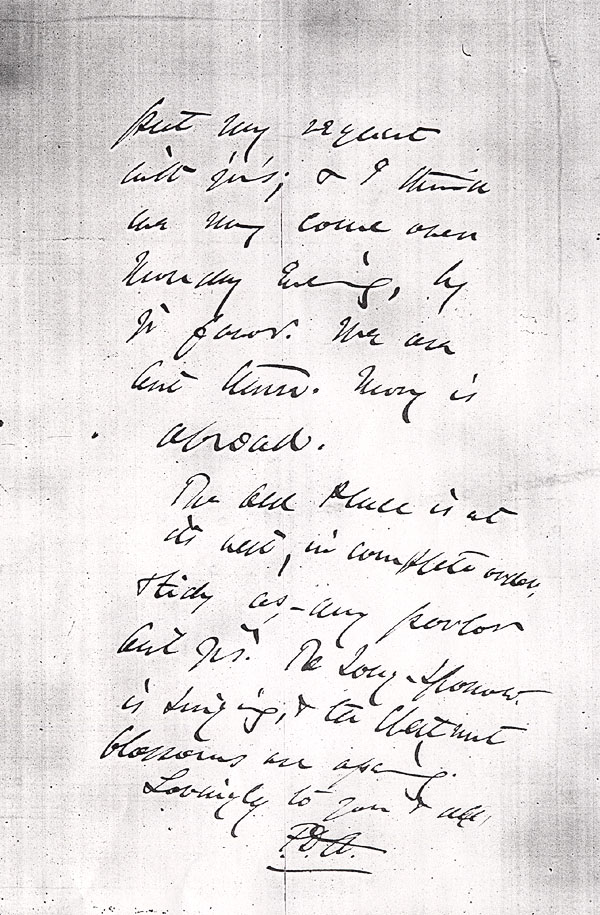 put my request
with yrs; & I think
we may come over
Monday Evening, by
yr favor. We are
but three. Mary is
abroad.
The Old Place is at
its best, in complete order,
& tidy as any parlor
but yrs. The Song-Sparrow
is singing, & the Chestnut
blossoms are opening.
Lovingly to you & all,
F.D.A.